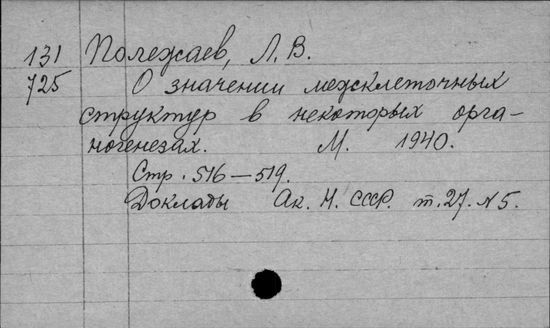 131 Полежаев, Л. В.
725 О значении межклеточных
структур в некоторых орга-
ногенезах. М. 1940.
Стр. 516—519.
Доклады Ак. Н. СССР. т. 27. №5.